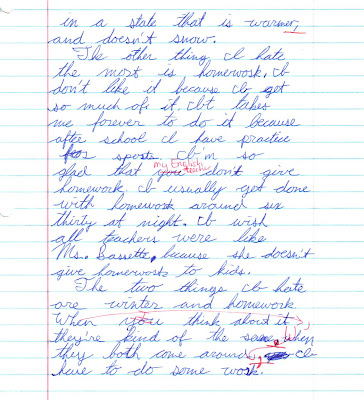 in a state that is warmer,
and doesn't snow.
The other thing I hate
the most is homework. I
don't like it because I get
so much of it. It takes
me forever to do it because
after school I have practice
for sports. I'm so
my English
glad that you teacher don't give
homework. I usually get done
with homework around six
thirty at night. I wish
all teachers were like
Ms. Bassette, because she doesn't
give homework to kids.
The two things I hate
are winter and homework.
When you think about it
they're kind of the same. When
they both come around, I
have to do some work.